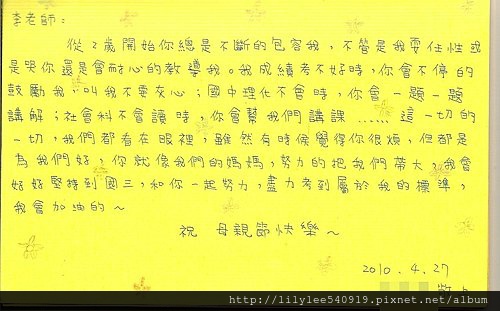 李老師：
從2歲開始你總是不斷的包容我，不管是我耍任性或
是哭你還是會耐心的教導我。我成績考不好時，你會不停的
鼓勵我，叫我不要灰心；國中理化不會時，你會一題一題
講解；社會科不會讀時，你會幫我們講課……這一切的
一切，我們都看在眼裡，雖然有時候覺得你很煩，但都是
為我們好，你就像我們的媽媽，努力的把我們帶大，我會
好好堅持到國三，和你一起努力，盡力考到屬於我的標準，
我會加油的～
祝 母親節快樂～
2010.4.27
敬上
http://lilylee540919.pixnet.net/album